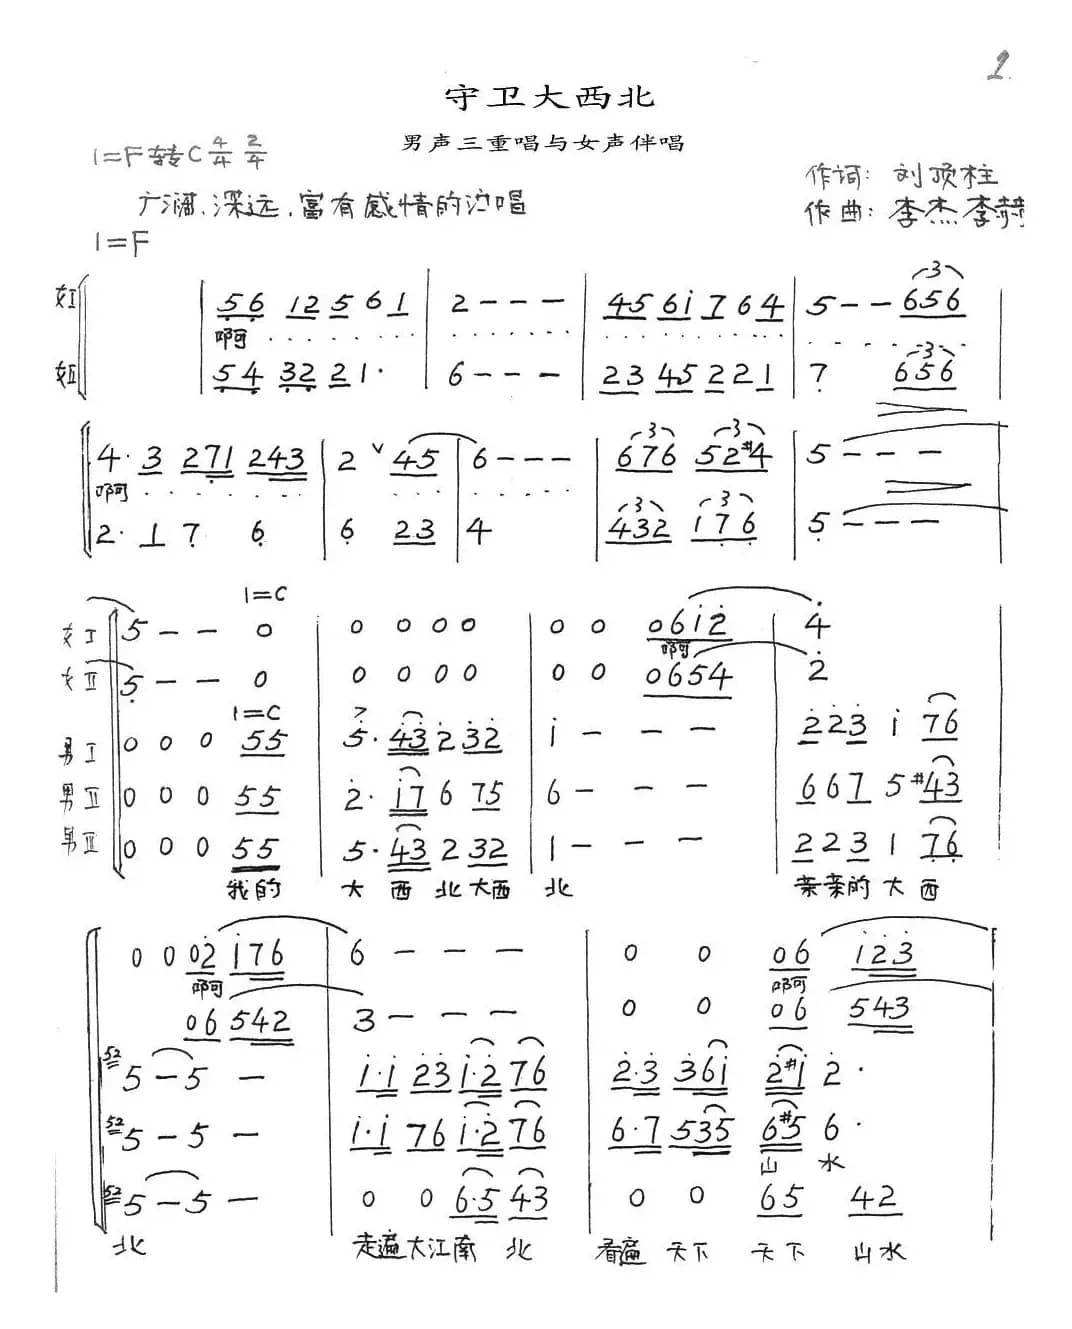 1.
守卫大西北
男声三重唱与女声伴唱
1=F转C 4/4 2/4
作词：刘顶柱
广阔、深远、富有感情的演唱
作曲：李杰 李赫
1=F
女I 56 12 5 6 1 | 2 - - - | 45 6i 7 6 4 | 5 - - 656
啊
女II 54 32 21· | 6 - - - | 23 45 2 2 1 | 7 656
4· 3 271 243 | 2 ∨ 45 | 6 - - - | 676 52#4 | 5 - - -
啊
2· 1 7 6 | 6 23 | 4 | 432 176 | 5 - - -
1=C
女I 5 - - 0 | 0 0 0 0 | 0 0 0612 | 4
啊
女II 5 - - 0 | 0 0 0 0 | 0 0 0654 | 2
1=C
男I 0 0 0 55 | 5· 43 2 32 | i - - - | 2 2 3 i 76
男II 0 0 0 55 | 2· i7 6 75 | 6 - - - | 6 6 7 5 #43
男III 0 0 0 55 | 5· 43 2 32 | 1 - - - | 2 2 3 1 76
我的 大 西 北 大西 北 亲亲的 大 西
0 0 02 i76 | 6 - - - | 0 0 06 i23
啊 啊
06 542 | 3 - - - | 0 0 06 543
52 5 - 5 - | i·i 23 i·2 76 | 2·3 36i 2#i 2·
52 5 - 5 - | i·i 76 i·2 76 | 6·7 535 6#5 6·
山 水
52 5 - 5 - | 0 0 6·5 43 | 0 0 65 42
北 走遍大江南 北 看遍 天下 天下 山水